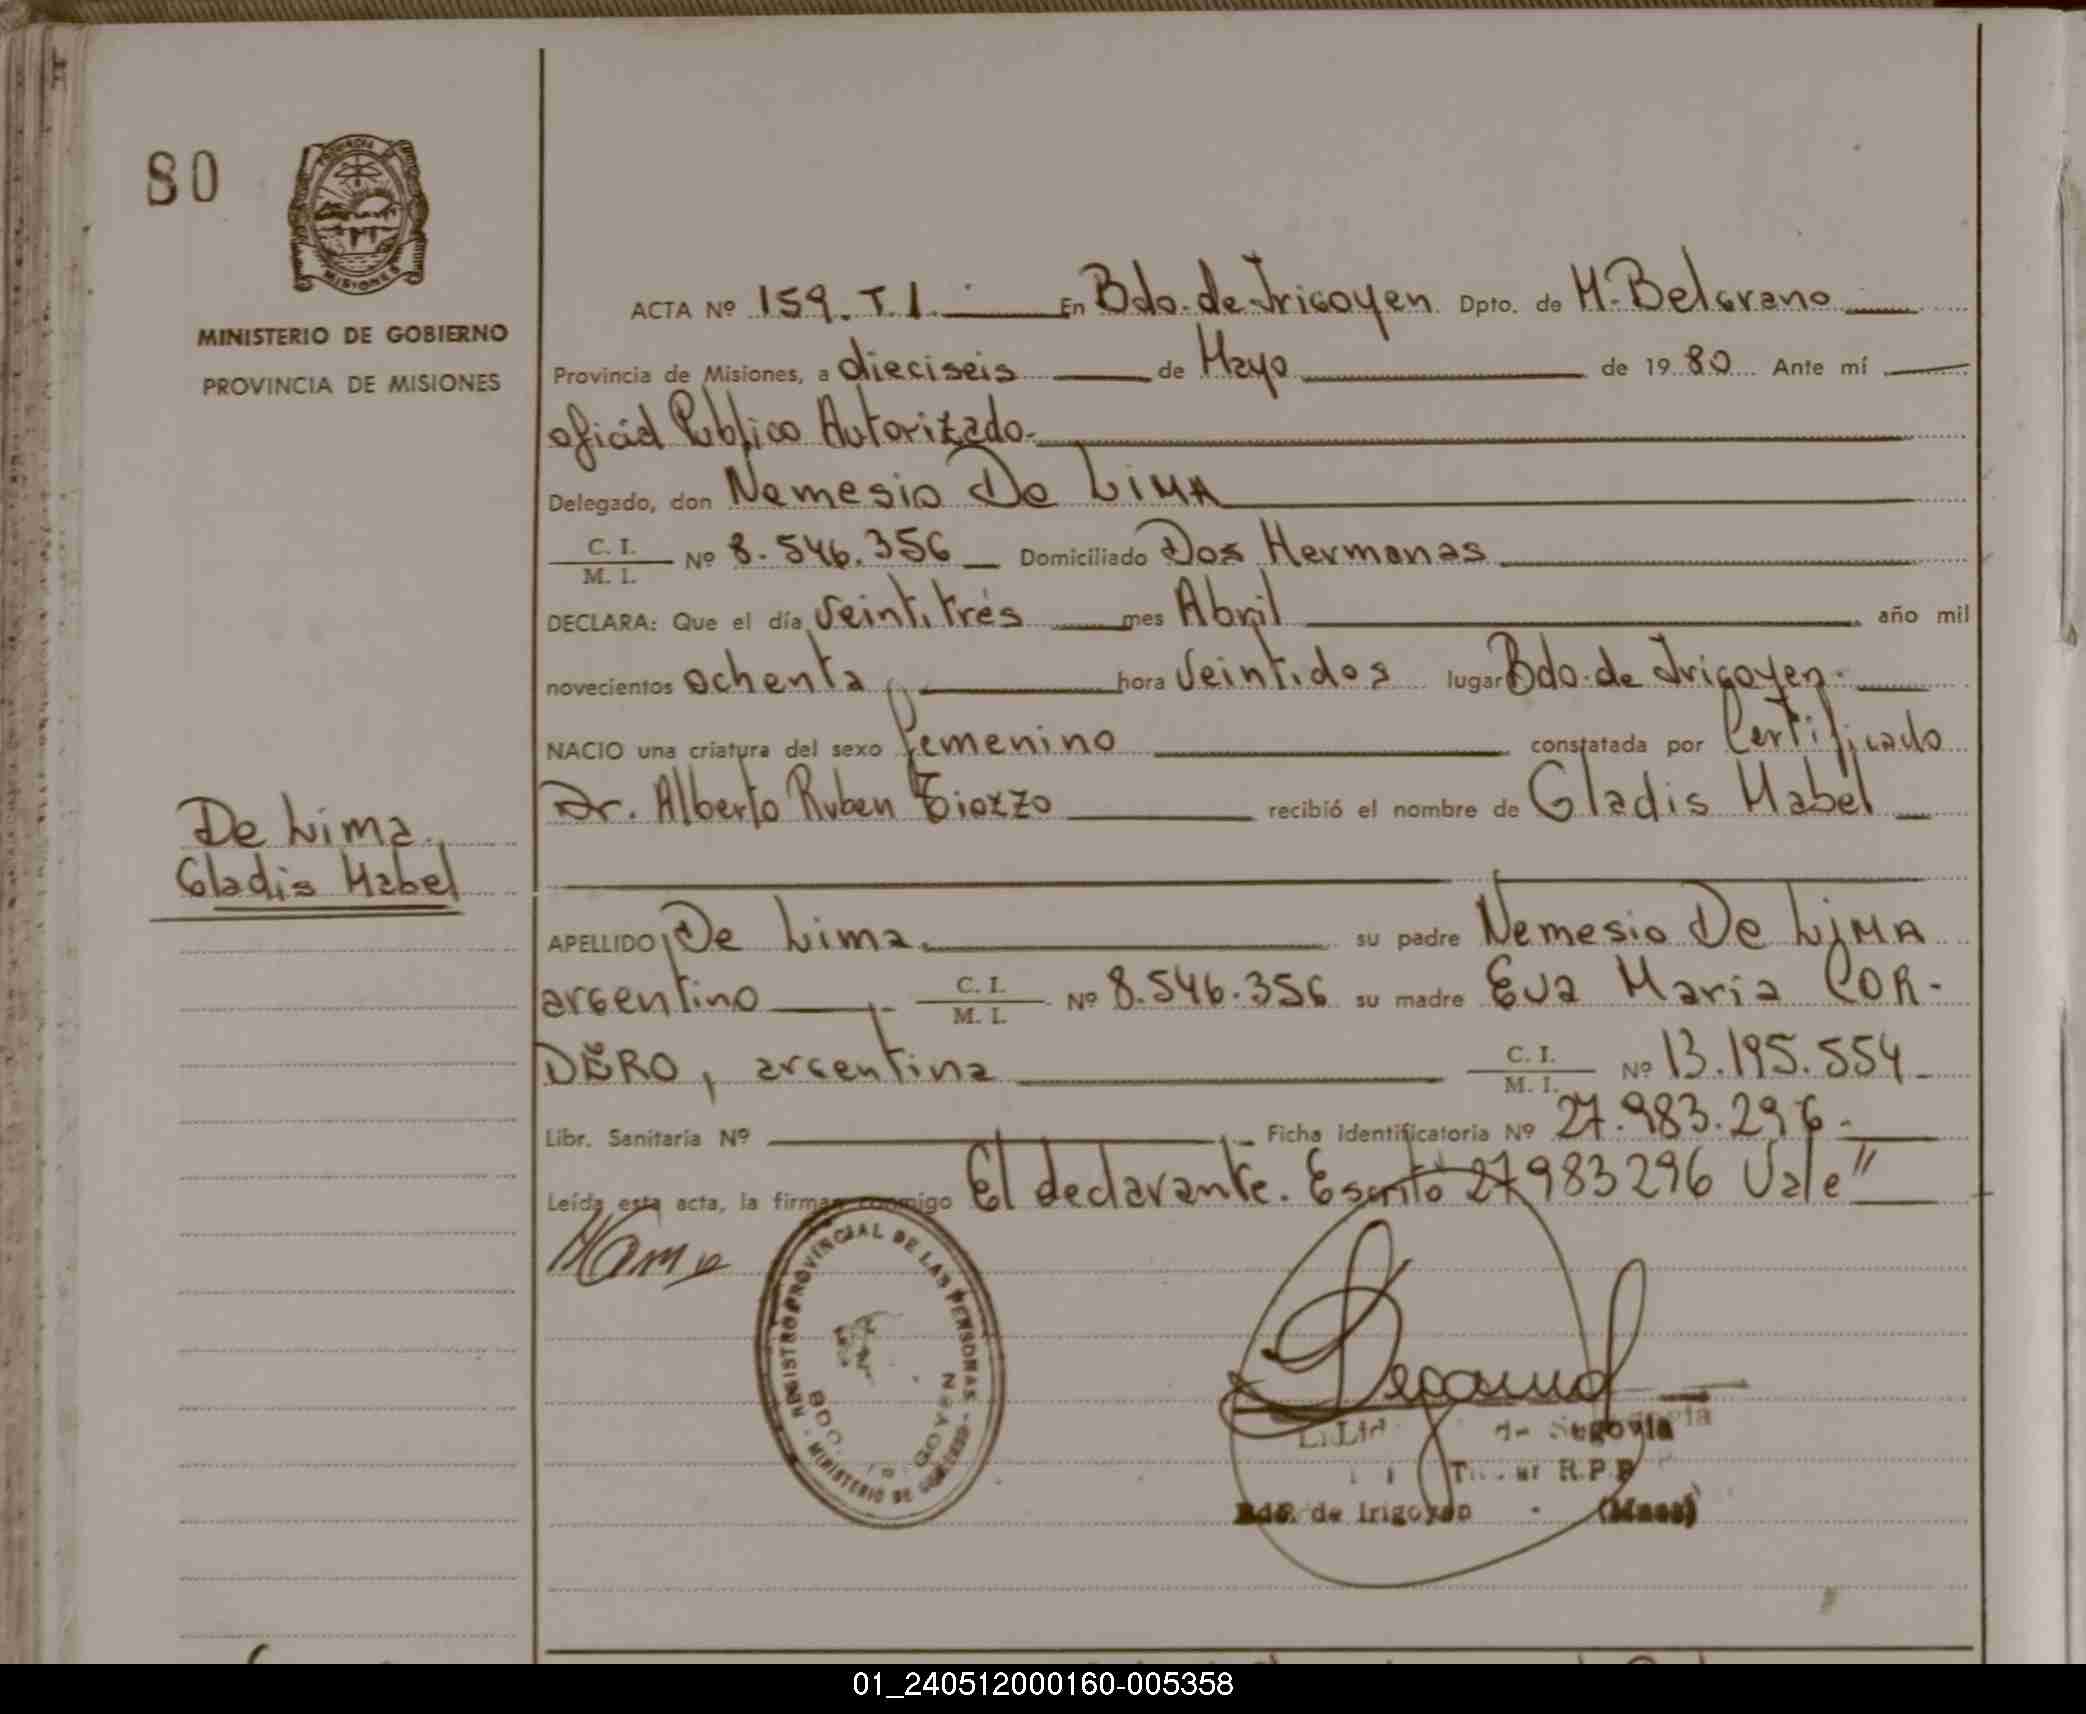 80
PROVINCIA DE
MISIONES
MINISTERIO DE GOBIERNO
PROVINCIA DE MISIONES
ACTA Nº 159. T. I. En Bdo. de Irigoyen Dpto. de M. Belgrano
Provincia de Misiones, a dieciseis de Mayo de 19 80 Ante mí
oficial Publico Autorizado.
Delegado, don Nemesio De LIMA
C. I.
M. I. Nº 8.546.356 Domiciliado Dos Hermanas
DECLARA: Que el día Veintitrés mes Abril año mil
novecientos ochenta, hora Veintidos lugar Bdo. de Irigoyen.
NACIO una criatura del sexo femenino constatada por Certificado
Dr. Alberto Ruben recibió el nombre de Gladis Mabel
De Lima
Gladis Mabel
APELLIDO De Lima. su padre Nemesio De LIMA
argentino, C. I.
M. I. Nº 8.546.356 su madre Eva Maria COR-
DERO, argentina C. I.
M. I. Nº 13.195.554
Libr. Sanitaria Nº Ficha identificatoria Nº 27.983.296.
Leída esta acta, la firman conmigo El declarante. Escrito 27983296 Vale"
REGISTRO PROVINCIAL DE LAS PERSONAS - MINISTERIO DE GOBIERNO
BDO. IRIGOYEN
de Segovia
R.P.P
Bdo. de Irigoyen (Mnes)
01_240512000160-005358